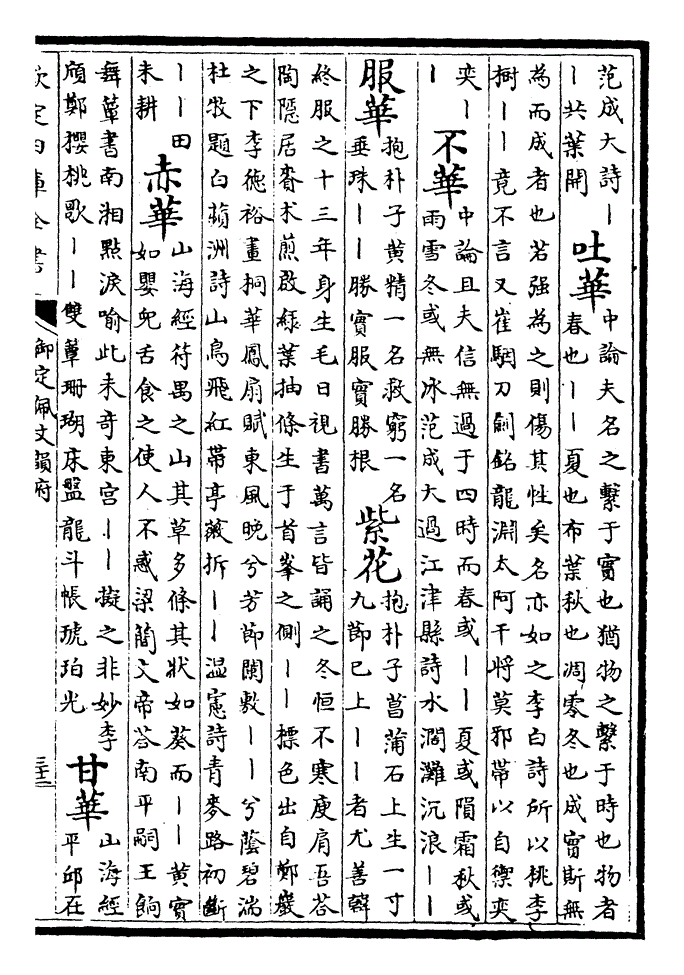 范成大詩丨
丨共葉開
吐華
中論夫名之繫于實也猶物之繫于時也物者
春也丨丨夏也布葉秋也凋零冬也成實斯無
為而成者也若强為之則傷其性矣名亦如之李白詩所以桃李
樹丨丨竟不言又崔駰刀劍銘龍淵太阿干將莫邪帶以自禦奕
奕丨
丨
不華
中論且夫信無過于四時而春或丨丨夏或隕霜秋或
雨雪冬或無冰范成大過江津縣詩水濶灘沉浪丨丨
服華
抱朴子黄精一名救窮一名
垂珠丨丨勝實服實勝根
紫花
抱朴子菖蒲石上生一寸
九節已上丨丨者尤善韓
終服之十三年身生毛日視書萬言皆誦之冬恒不寒庾肩吾荅
陶隱居賚术煎啟緑葉抽條生于首峯之側丨丨標色出自鄭巖
之下李德裕畫桐華鳳扇賦東風晚兮芳節闌敷丨丨兮蔭碧湍
杜牧題白蘋洲詩山鳥飛紅帶亭薇拆丨丨温憲詩青麥路初斷
丨丨田
未耕
赤華
山海經符禺之山其草多條其狀如葵而丨丨黄實
如嬰兒舌食之使人不惑梁簡文帝荅南平嗣王餉
舞簟書南湘點淚喻此未奇東宫丨丨擬之非妙李
頎鄭櫻桃歌丨丨雙簟珊瑚床盤龍斗帳琥珀光
甘華
山海經
平邱在
欽定四庫全書
御定佩文韻府